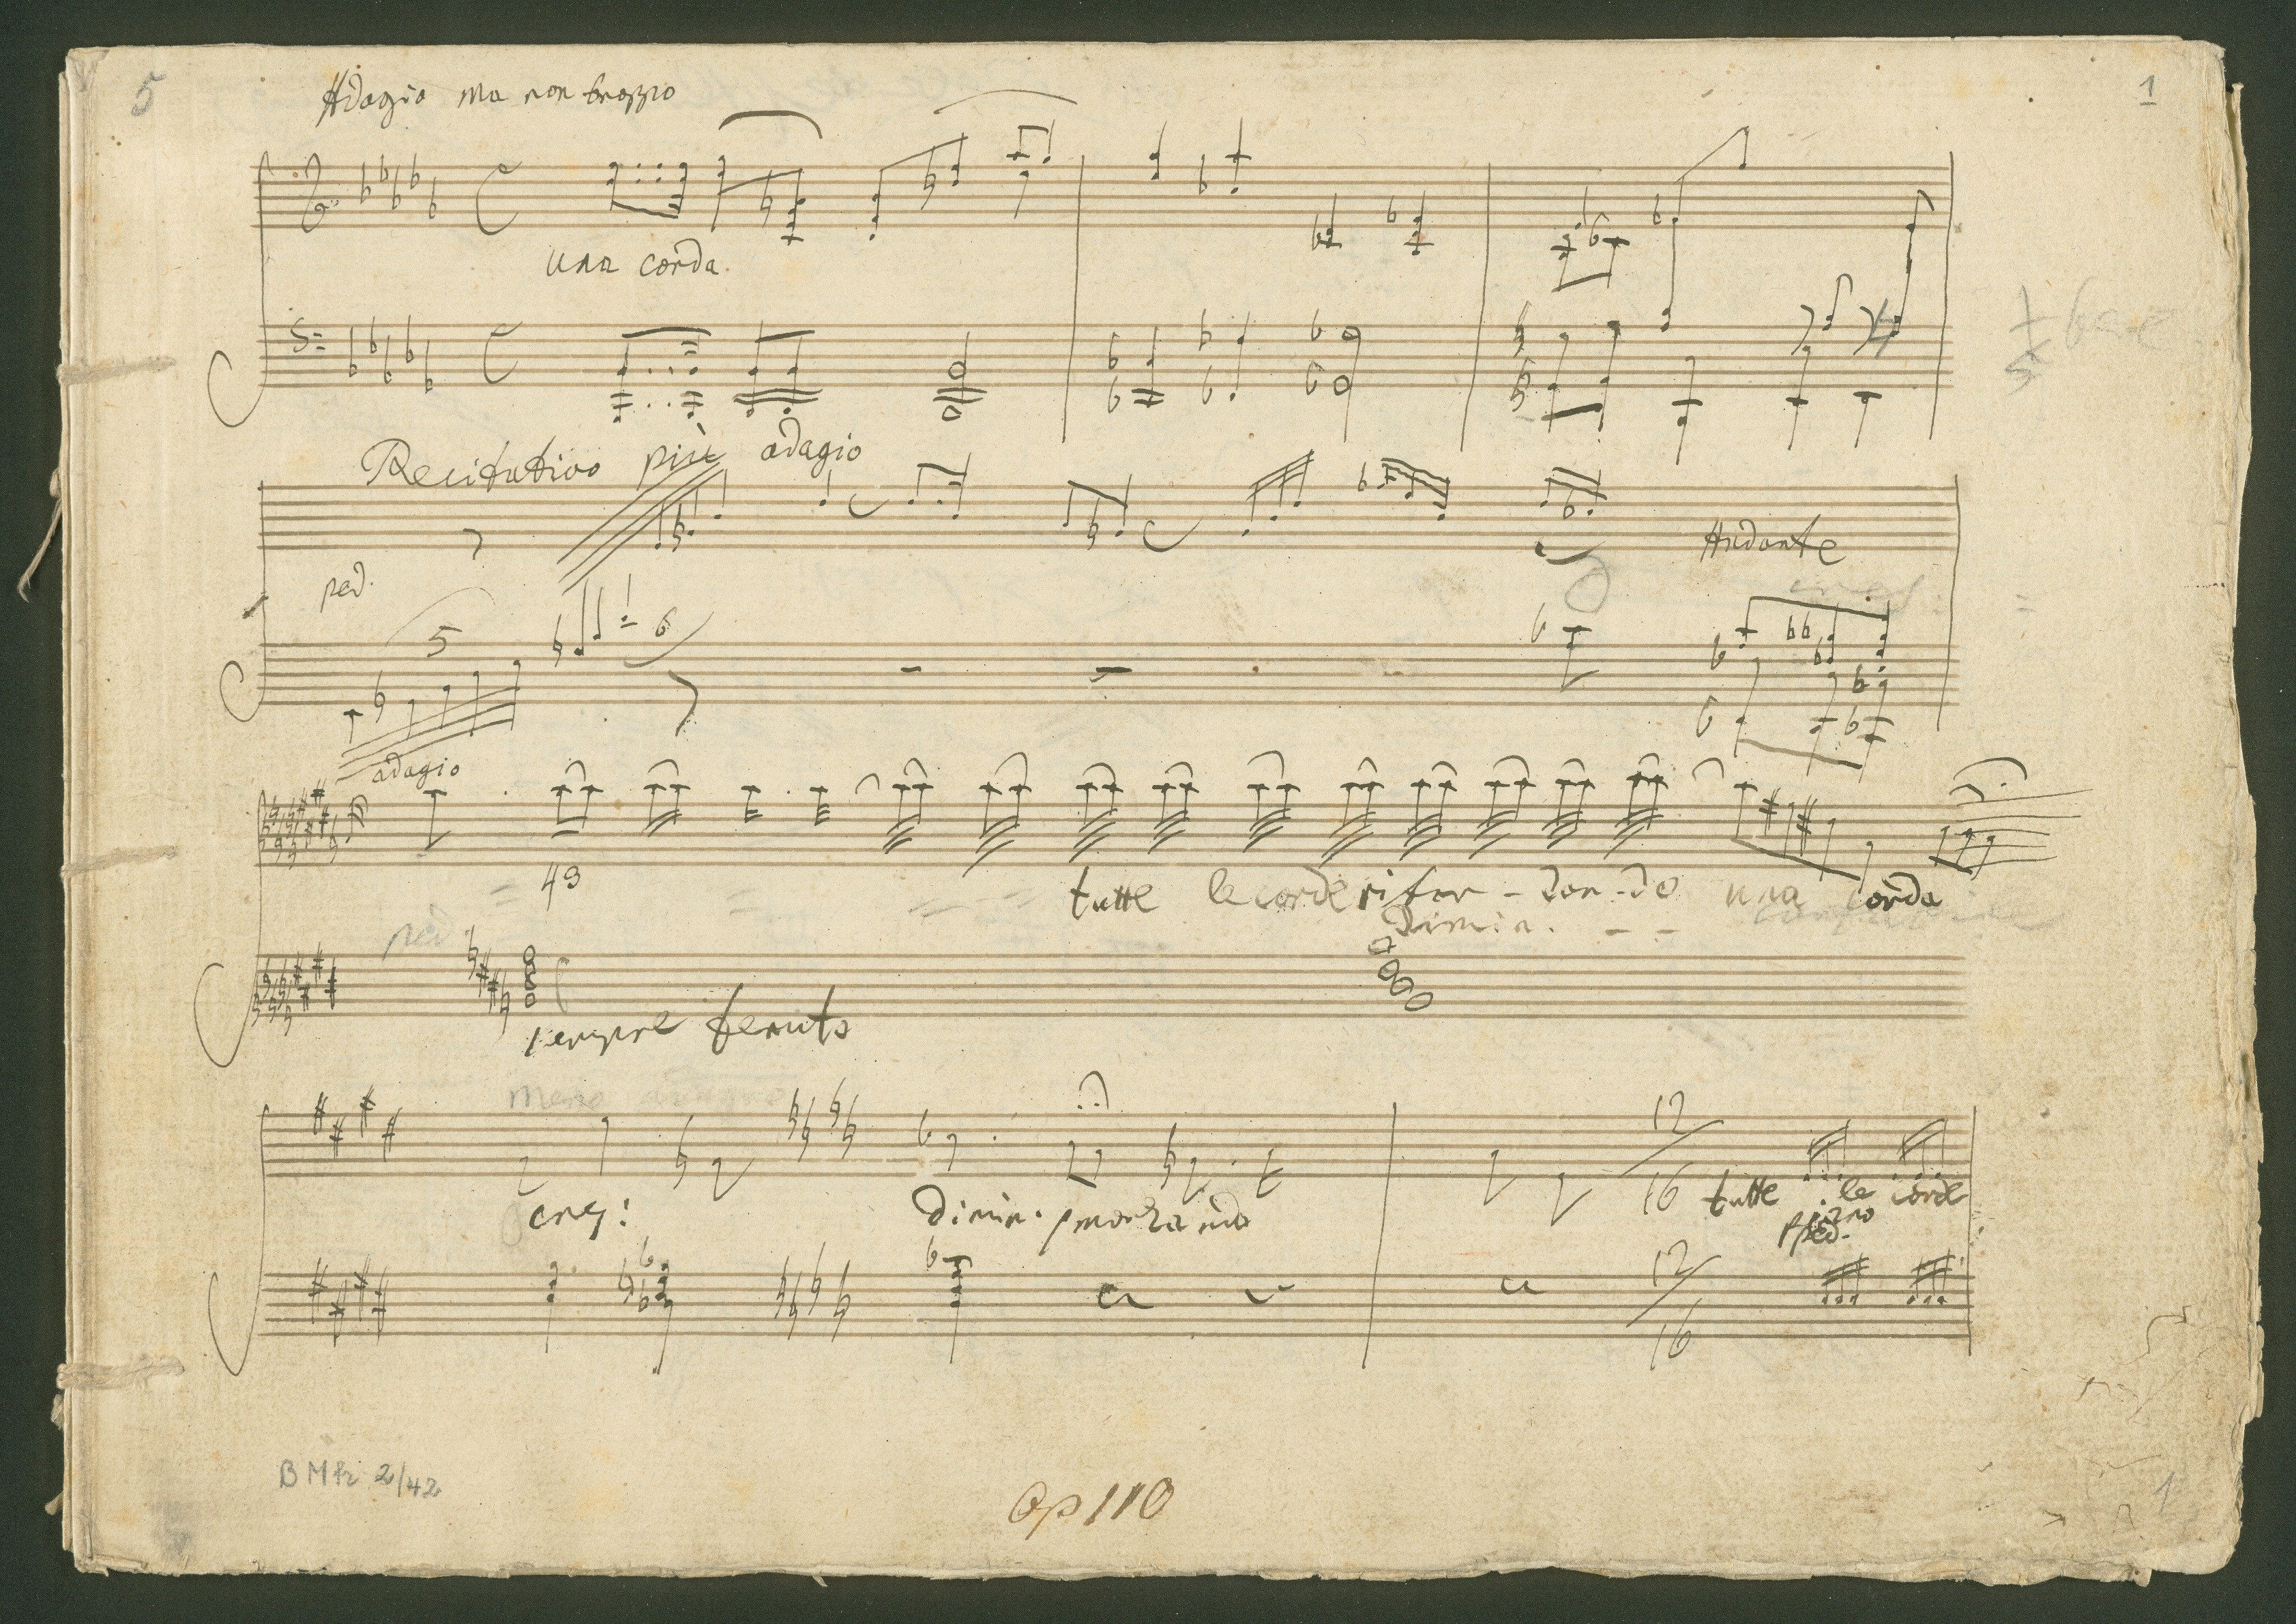 5 Adagio ma non troppo 1
una corda
Recitativo più adagio
Andante
ped.
5
6
adagio
43
tutte le corde ritar - dan - do una corda
dimin. - -
ped.
sempre tenuto
meno adagio
12
16
cresc:
dimin. smorzando
tutte le corde
piano
ped.
12
16
BMh 2/42
Op 110
1